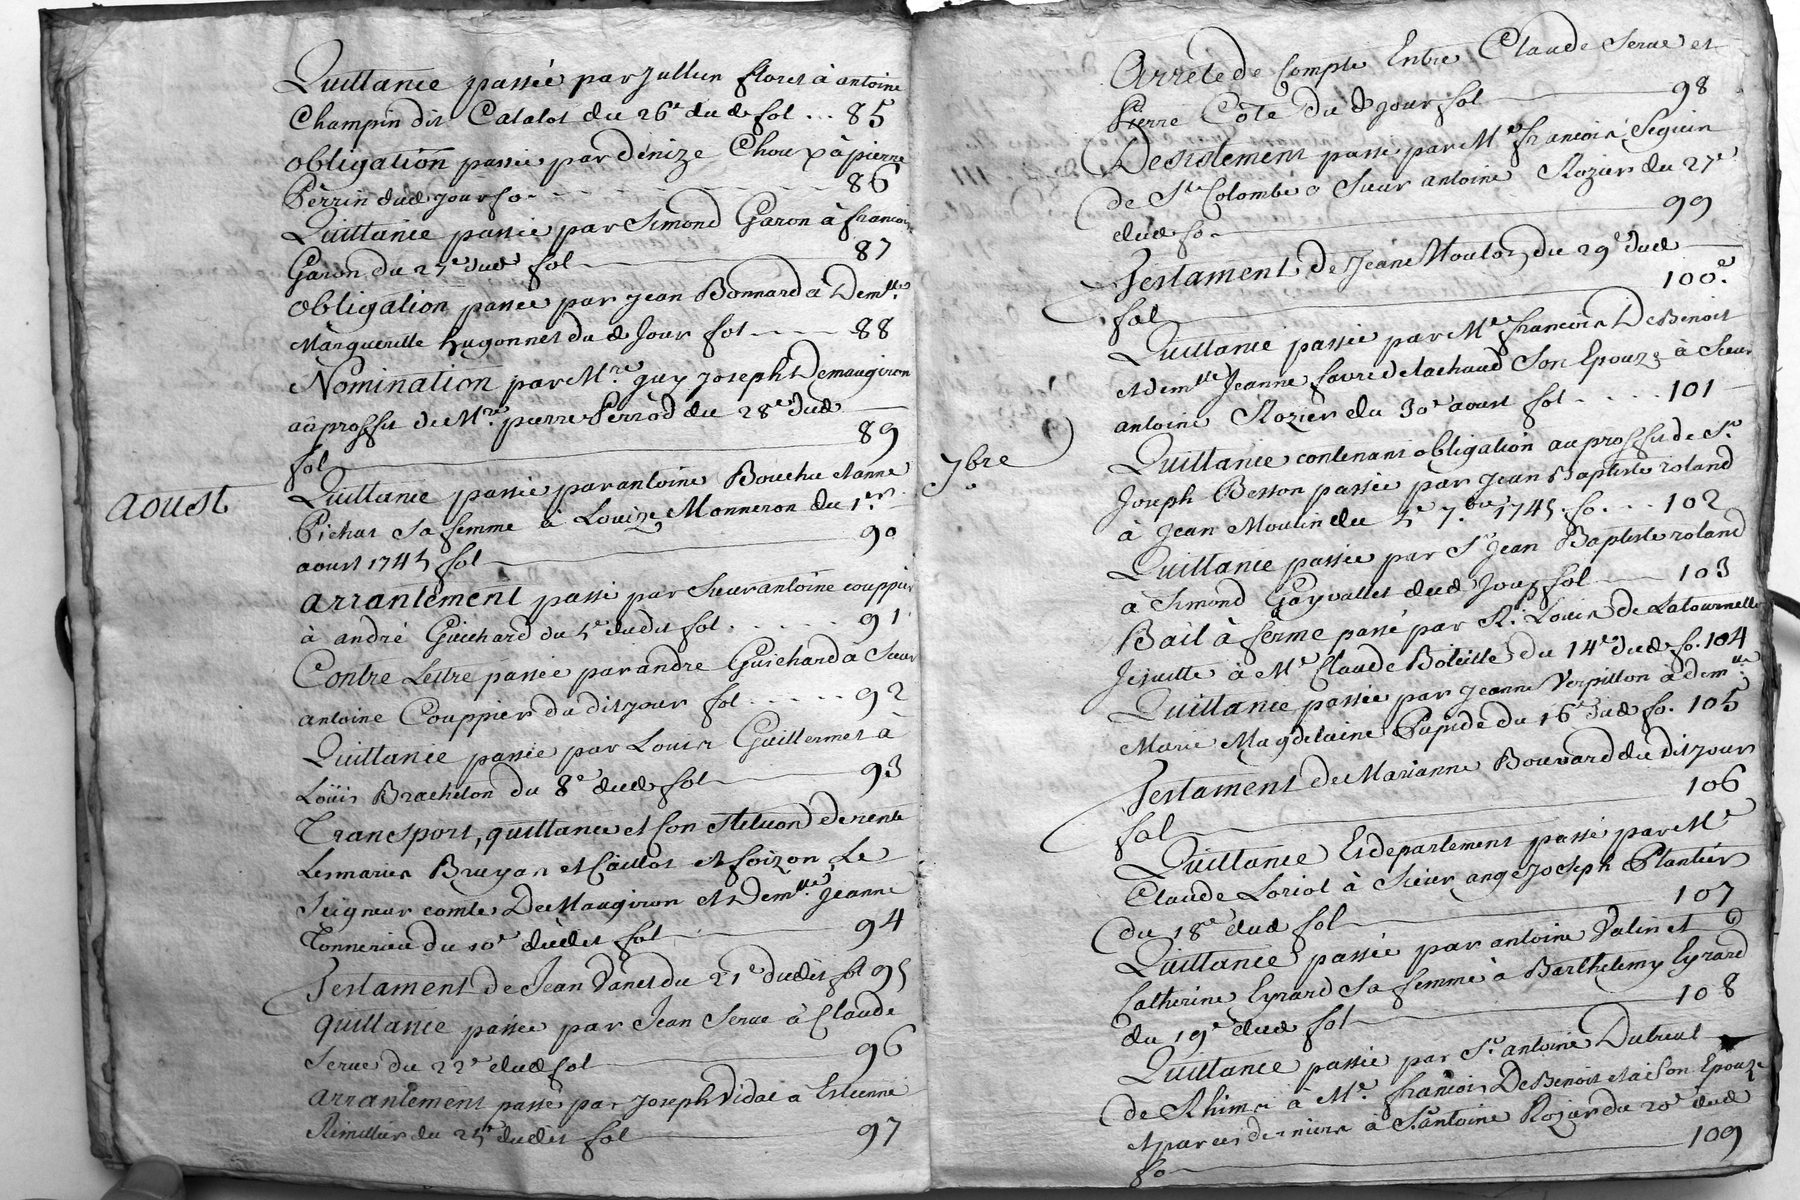 Quittance passée par Jullien floret à antoine
Champin dit Catalot du 26e dud fol ... 85
obligation passée par denize Choux à pierre
Perrin dud jour fo 86
Quittance passée par Simond Garon à francois
Garon du 27e dud fol 87
obligation passée par jean Bonnard à Demlle
Margueritte hugonnet du d Jour fol 88
Nomination par Mre guy joseph Demaugiron
au proffit de Mre pierre Perrod du 28e dud
fol 89
aoust
Quittance passée par antoine Bouchu et anne
Pichat sa femme à Louize Monneron du 1er
aoust 1745 fol 90
arrantement passé par Sieur antoine couppier
à andré Guichard du 5e dudit fol 91
Contre Lettre passée par andré Guichard a Sieur
antoine Couppier du dit jour fol 92
Quittance passée par Louis Guillermet à
Louis Bracheton du 8e dud fol 93
Transport, quittance et Constitution de rente
Les maries Bruyas et Caillot et foizon Le
Seigneur comte De Maugiron et Demlle Jeanne
Tonnerieu du 10e dudit fol 94
Testament de Jean Vanet du 21e dudit fol 95
quittance passée par Jean Serve à Claude
Serve du 22e dud fol 96
arrantement passé par joseph Vidal a Estienne
Rimillier du 25e dudit fol 97
Arreté de Compte Entre Claude Serve et
Pierre Côte du d jour fol 98
Desistement passé par Me francois Seguin
de Ste Colombe a Sieur antoine Rozier du 27e
dud fo 99
Testament de Jeane Mouton du 29e dud
fol 100
Quittance passée par Me francois De Benoit
et demlle Jeanne favre delachaud Son Epouze à Sieur
antoine Rozier du 30e aoust fol 101
7bre
Quittance contenant obligation au proffit de Sr
Joseph Besson passée par Jean Baptiste roland
à Jean Moulin du 5e 7bre 1745 fo 102
Quittance passée par Sr Jean Baptiste roland
à Simond Gayvallet dud Jour fol 103
Bail à ferme passé par R. Louis de Latournelle
Jesuitte à Me Claude Boleille du 14e dud fo. 104
Quittance passée par Jeanne Verpillon à demlle
Marie Magdelaine Papide du 16e dud fo. 105
Testament de Marianne Bouvard du dit jour
fol 106
Quittance Et departement passé par Me
Claude Loriol à Sieur ange Joseph Plantier
du 18e dud fol 107
Quittance passée par antoine Valin et
Catherine Eyrard Sa femme à Barthelemy Eyrard
du 19e dud fol 108
Quittance passée par Sr antoine Dubreul
de Rhims à Me francois De Benoit et a Son Epouze
et par ces derniers à Sr antoine Rozier du 20e dud
fo 109